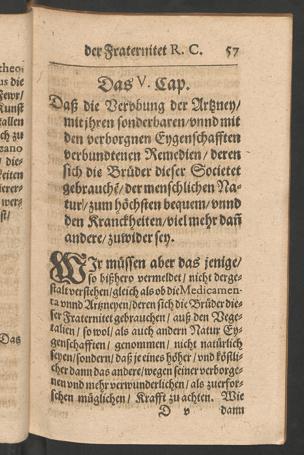 der Fraternitet R. C. 57
Das V. Cap.
Daß die Veröbung der Artzney/
mit jhren sonderbaren/ vnnd mit
den verborgnen Eygenschafften
verbundtenen Remedien/ deren
sich die Brüder dieser Societet
gebrauchē/ der menschlichen Na-
tur/ zum höchsten bequem/ vnnd
den Kranckheiten/ viel mehr dañ
andere/ zuwider sey.
WIr müssen aber das jenige/
so bißhero vermeldet/ nicht derge-
stalt verstehen/ gleich als ob die Medicamen-
ta vnnd Artzneyen/ deren sich die Brüder die-
ser Fraternitet gebrauchen/ auß den Vege-
talien/ so wol/ als auch andern Natur Ey-
genschafften/ genommen/ nicht natürlich
seyen/ sondern/ daß je eines höher/ vnd köstli-
cher dann das andere/ wegen seiner verborge-
nen vnd mehr verwunderlichen/ als zuerfor-
schen müglichen/ Krafft zu achten. Wie
D v dann
theo-
us die
Fewr/
Kunst
allen
ch zu
zano
/ die-
keiten
ierer-
wers
st/
Das